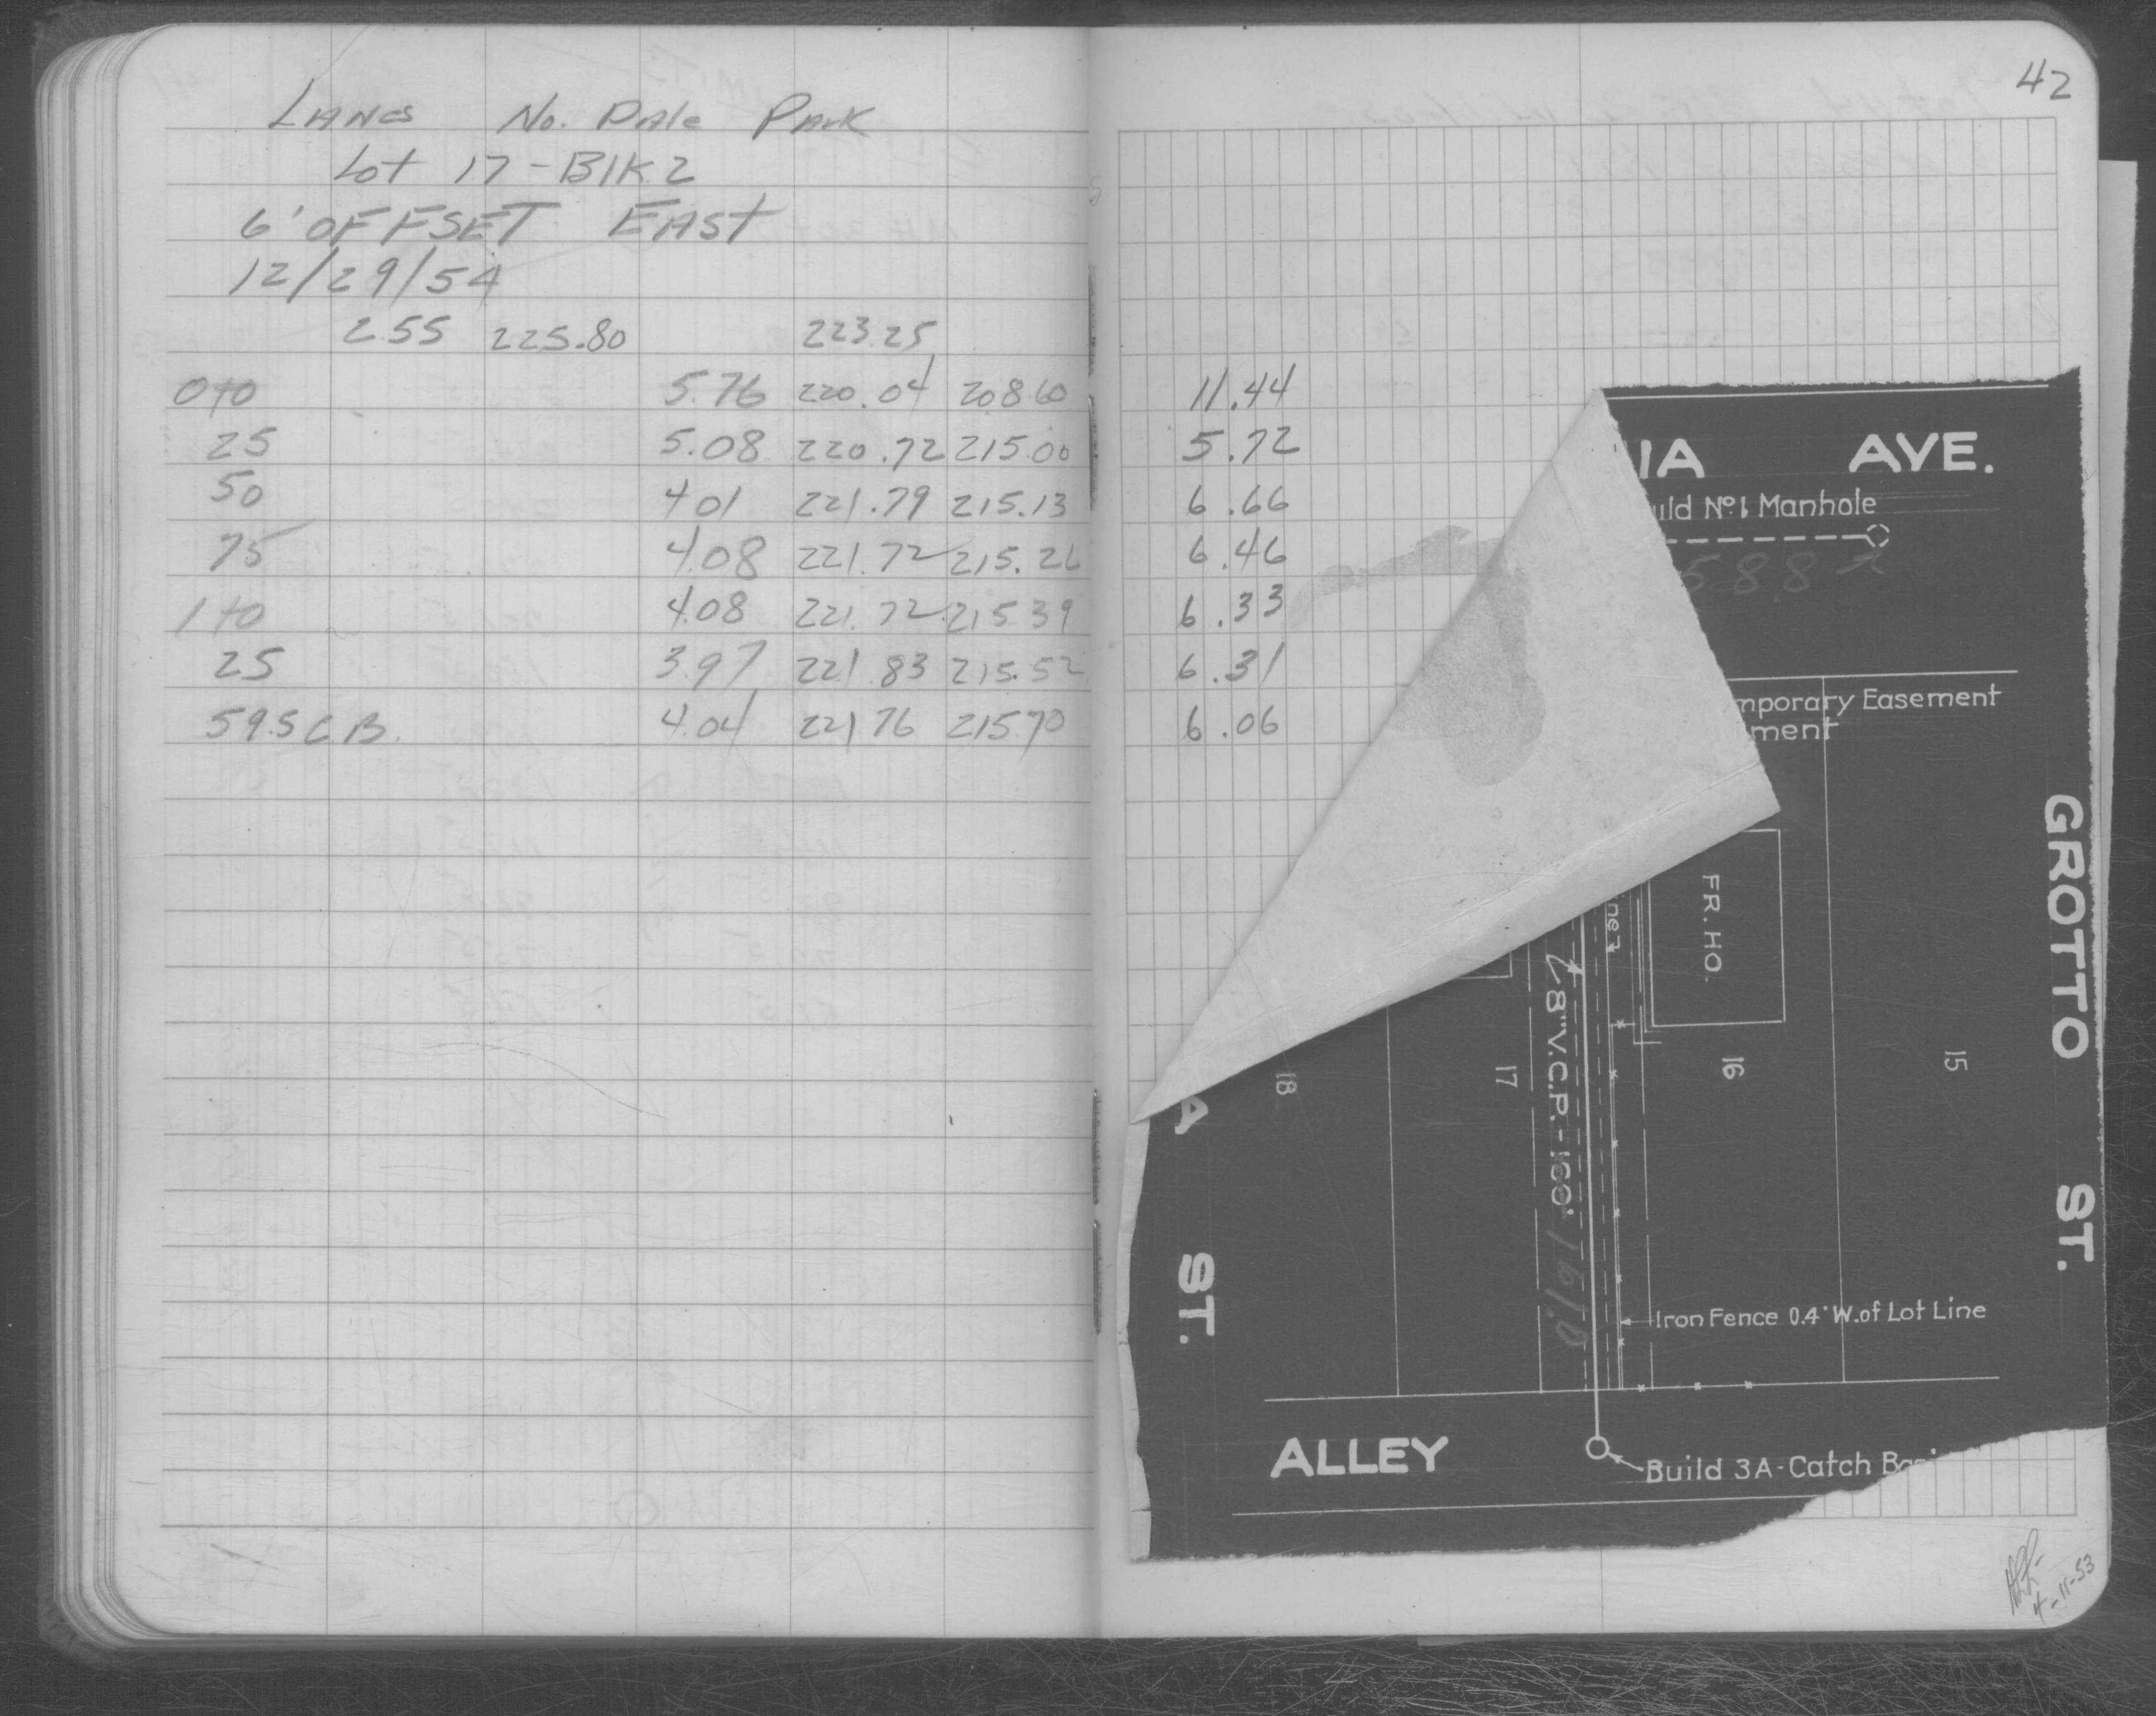 42
LANES No. DALE PARK
Lot 17 - Blk. 2
6' OFFSET EAST
12/29/54
2.55 225.80 223.25
0+0 5.76 220.04 208.60 11.44
25 5.08 220.72 215.00 5.72
50 4.01 221.79 215.13 6.66
75 4.08 221.72 215.26 6.46
1+0 4.08 221.72 215.39 6.33
25 3.97 221.83 215.52 6.31
59.5 C.B. 4.04 221.76 215.70 6.06
IA AVE.
uild No 1 Manhole
588
mporary Easement
ment
GROTTO ST.
FR. HO.
ine
8" V.C.P. - 160'
161.0
18
17
16
15
A ST.
Iron Fence 0.4' W. of Lot Line
ALLEY
Build 3A - Catch Bas
4-11-53